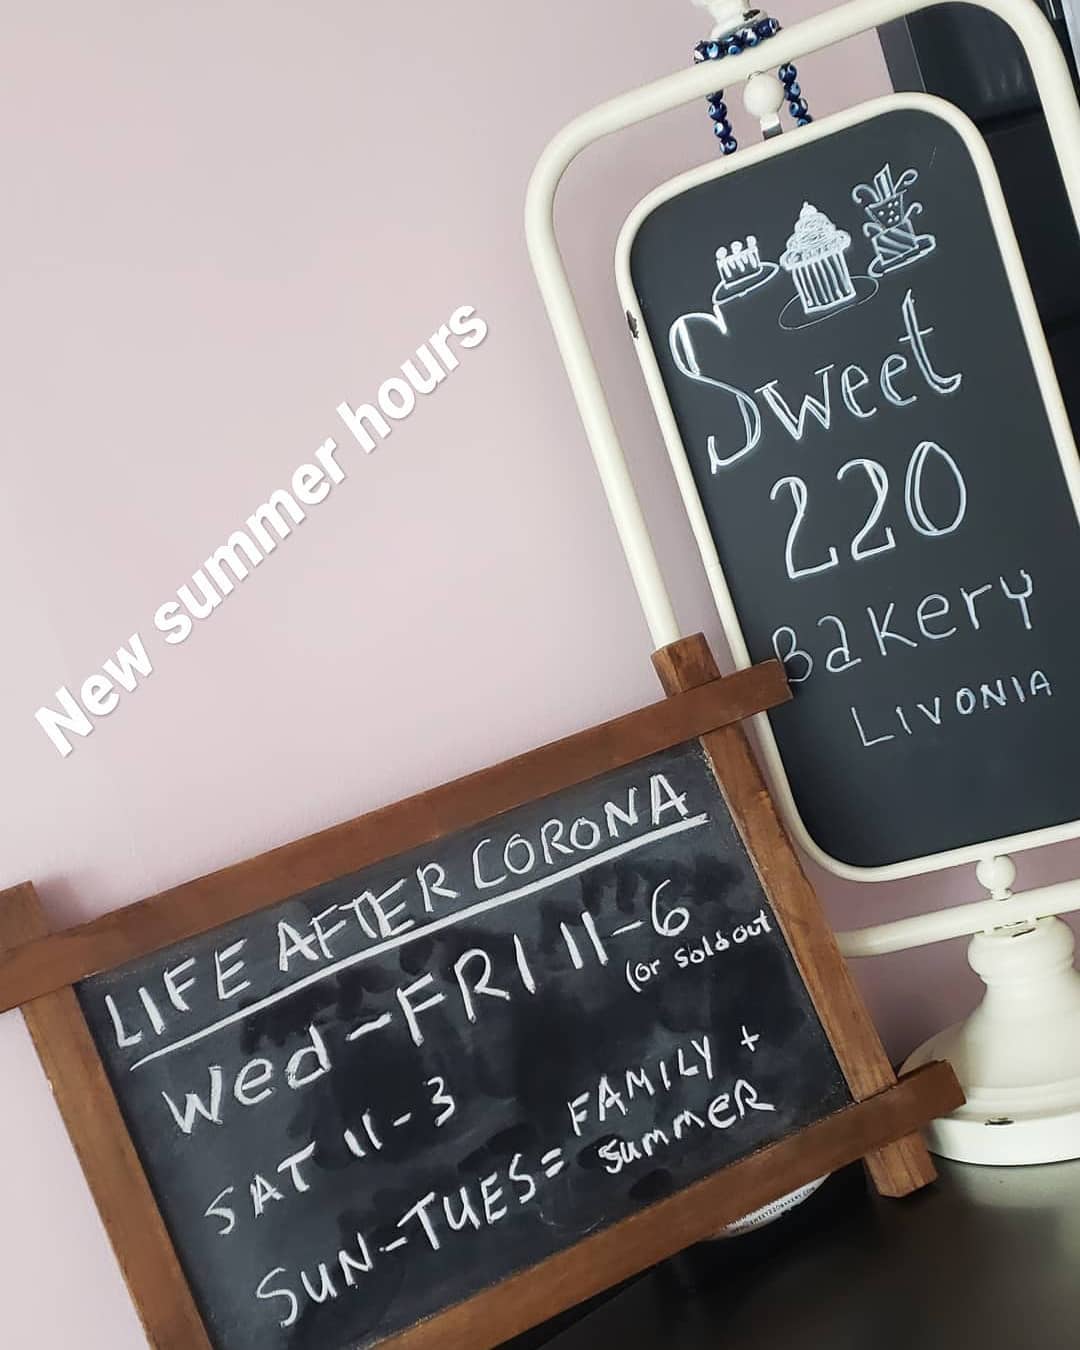 New summer hours
Sweet
220
Bakery
LIVONIA
LIFE AFTER CORONA
Wed-FRI 11-6
(or Sold out
SAT 11-3
SUN-TUES= FAMILY +
SUMMER